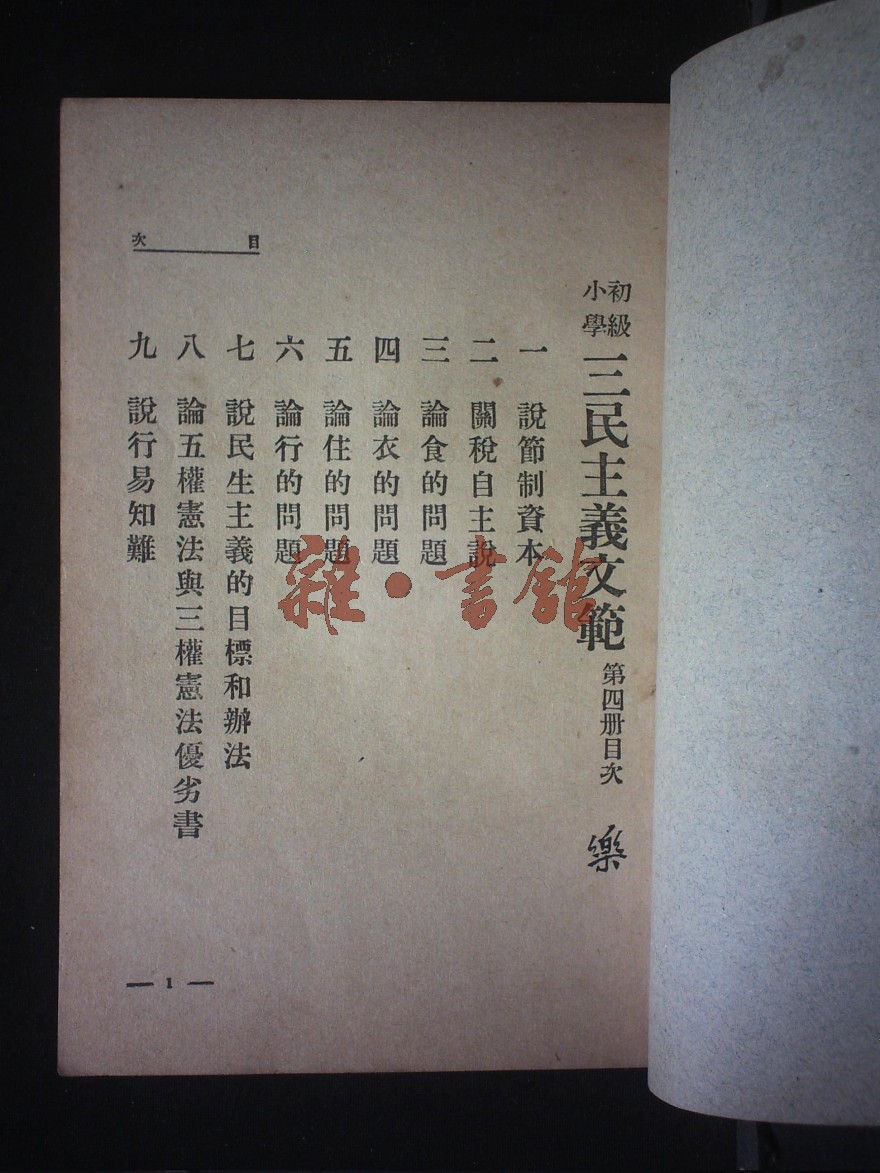 初級小學 三民主義文範 第四册目次 樂
一 說節制資本
二 關稅自主說
三 論食的問題
四 論衣的問題
五 論住的問題
六 論行的問題
七 說民生主義的目標和辦法
八 論五權憲法與三權憲法優劣書
九 說行易知難
目次
1
雜·書館